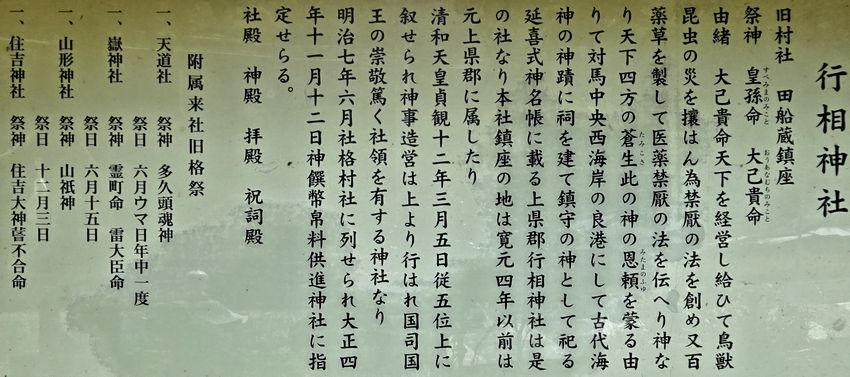 行相神社
旧村社　田船蔵鎮座
祭神　皇孫命　大己貴命
すべみまのみこと　おうあなむちのみこと
由緒　大己貴命天下を経営し給ひて鳥獣
昆虫の災を攘はん為禁厭の法を創め又百
薬草を製して医薬禁厭の法を伝へり神な
り天下四方の蒼生此の神の恩頼を蒙る由
たみこさ　みたまのふゆ
りて対馬中央西海岸の良港にして古代海
神の神蹟に祠を建て鎮守の神として祀る
延喜式神名帳に載る上県郡行相神社は是
の社なり本社鎮座の地は寛元四年以前は
元上県郡に属したり
清和天皇貞観十二年三月五日従五位上に
叙せられ神事造営は上より行はれ国司国
王の崇敬篤く社領を有する神社なり
明治七年六月社格村社に列せられ大正四
年十一月十二日神饌幣帛料供進神社に指
定せらる。
社殿　神殿　拝殿　祝詞殿
附属来社旧格祭
一、天道社　祭神　多久頭魂神
祭日　六月ウマ日年中一度
一、嶽神社　祭神　霊町命　雷大臣命
祭日　六月十五日
一、山形神社　祭神　山祇神
祭日　十二月三日
一、住吉神社　祭神　住吉大神葺不合命